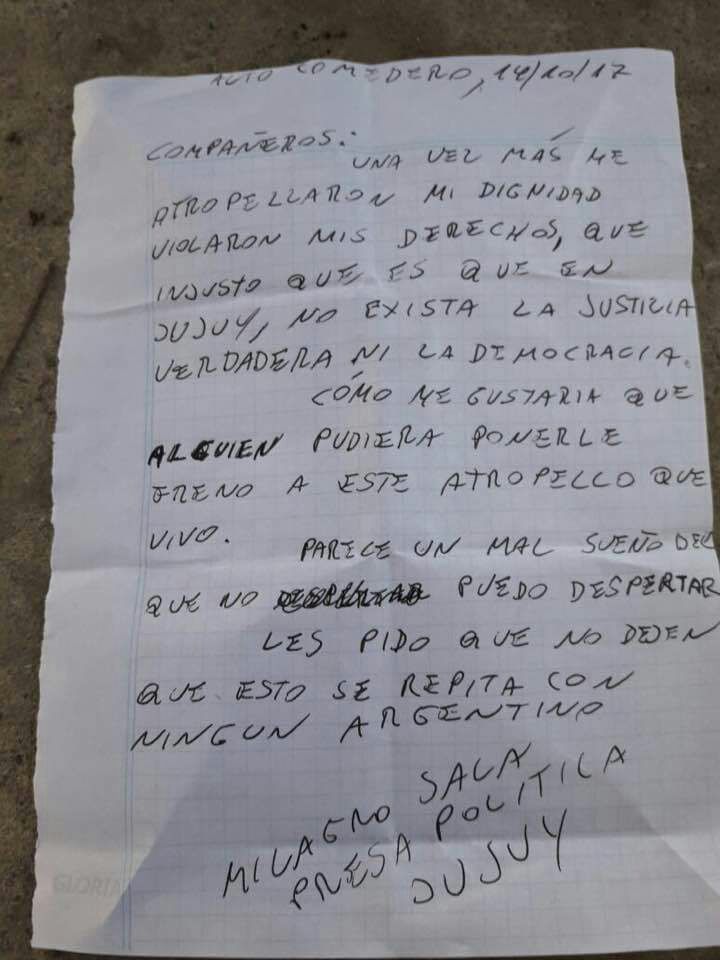 ALTO COMEDERO, 14/10/17
COMPAÑEROS:
UNA VEZ MÁS ME
ATROPELLARON MI DIGNIDAD
VIOLARON MIS DERECHOS, QUE
INJUSTO QUE ES QUE EN
JUJUY, NO EXISTA LA JUSTICIA
VERDADERA NI LA DEMOCRACIA.
CÓMO ME GUSTARIA QUE
ALGUIEN PUDIERA PONERLE
FRENO A ESTE ATROPELLO QUE
VIVO.
PARECE UN MAL SUEÑO DEL
QUE NO PUEDO DESPERTAR
LES PIDO QUE NO DEJEN
QUE ESTO SE REPITA CON
NINGUN ARGENTINO
MILAGRO SALA
PRESA POLITICA
JUJUY
GLORIA